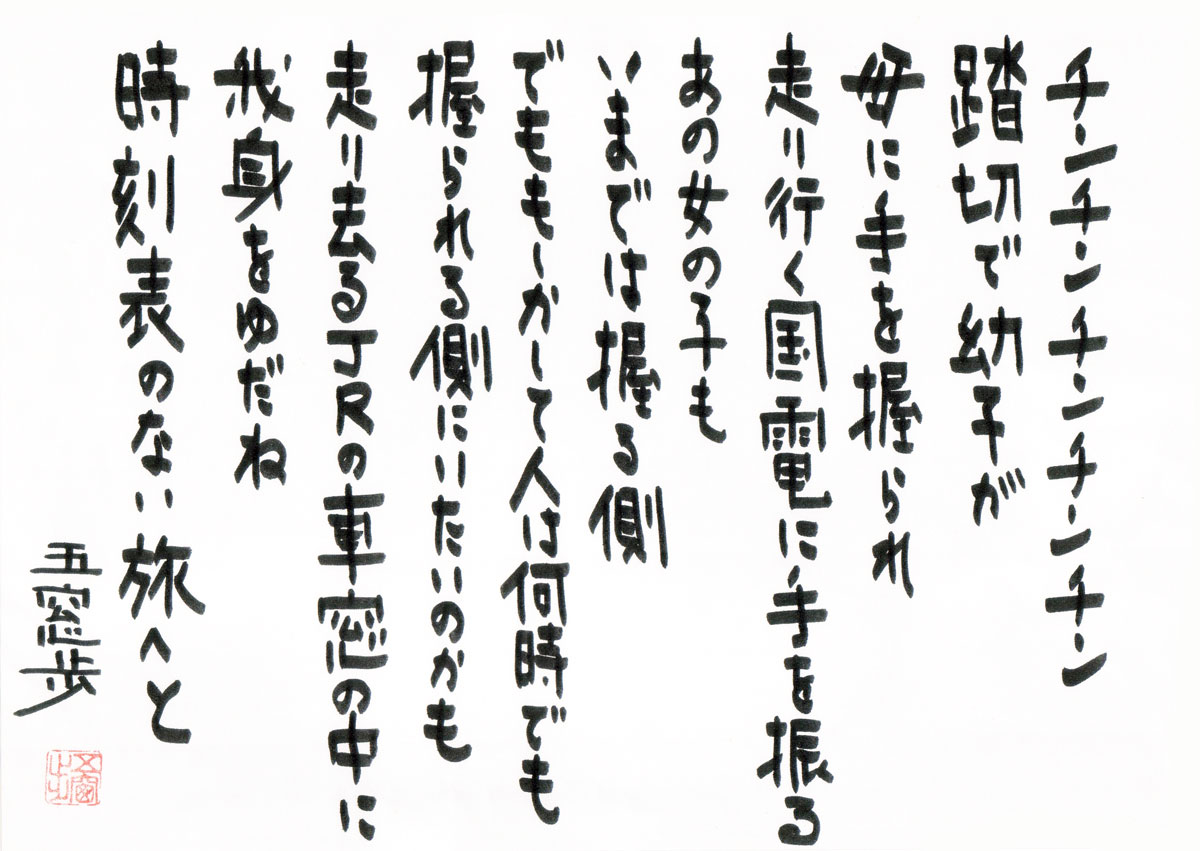 チンチンチンチンチン
踏切で幼子が
母に手を握られ
走り行く国電に手を振る
あの女の子も
いまでは握る側
でももしかして人は何時でも
握られる側にいたいのかも
走り去るJRの車窓の中に
我身をゆだね
時刻表のない旅へと
五窓歩